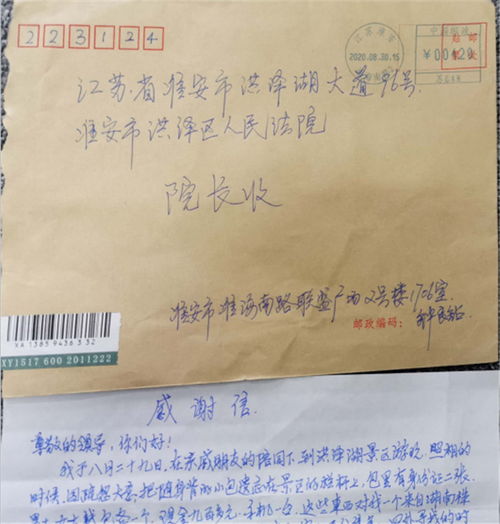 223124
江苏淮安
2020.08.30.15
中国邮政
邮资已付
¥00120
江苏省淮安市洪泽湖大道96号
淮安市洪泽区人民法院
院长收
淮安市淮海南路联盛广场2号楼1706室
邮政编码：
XA 1385 9436 3 32
XY1517 600 2011222
感谢信
尊敬的领导，你们好！
我于八月二十九日，在亲戚朋友的陪同下到洪泽湖景区游玩，照相的
时候，因疏忽大意，把随身背的小包遗忘在景区的栏杆上，包里有身份证二张
一个，现金九百多元，手机一台，这些东西对我一个来自湖南